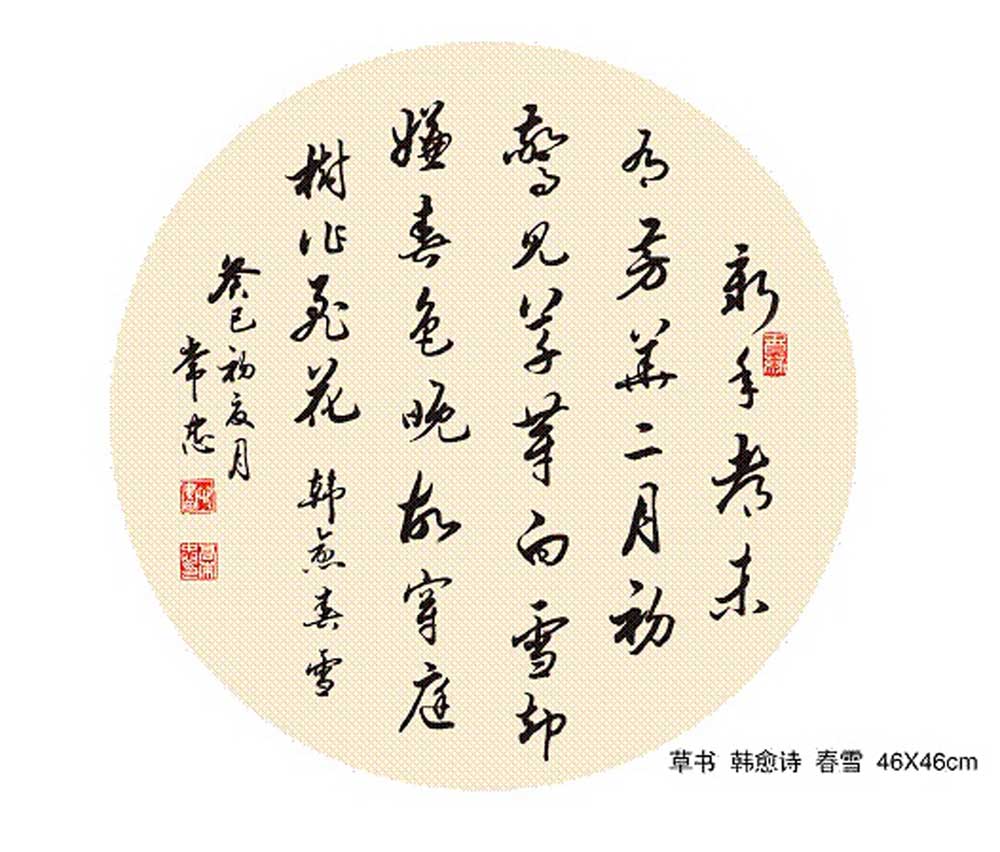 新年都未
有芳華二月初
驚見草芽白雪却
嫌春色晚故穿庭
樹作飛花 韩愈春雪
癸巳初夏月
常
草书 韩愈诗 春雪 46X46cm